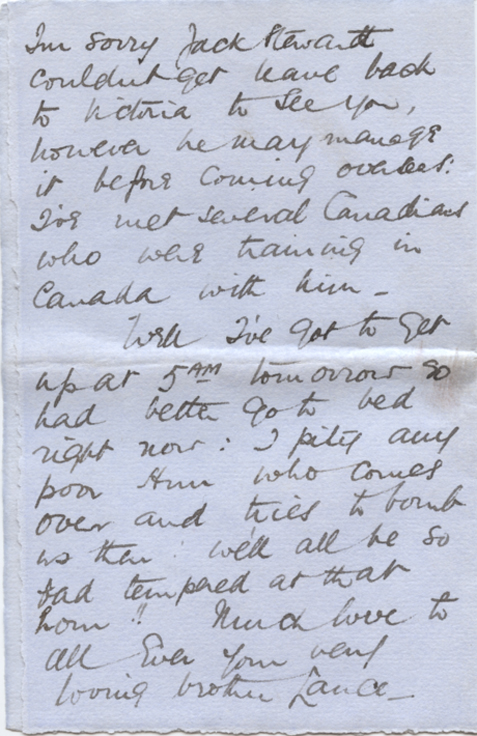 I'm sorry Jack Stewart
couldn't get leave back
to Victoria to see you,
however he may manage
it before coming overseas.
I've met several Canadians
who were training in
Canada with him –
Well I've got to get
up at 5 AM tomorrow so
had better go to bed
right now: I pity any
poor Hun who comes
over and tries to bomb
us then: we'll all be so
bad tempered at that
hour!! Much love to
all Ever your very
loving brother Lance –